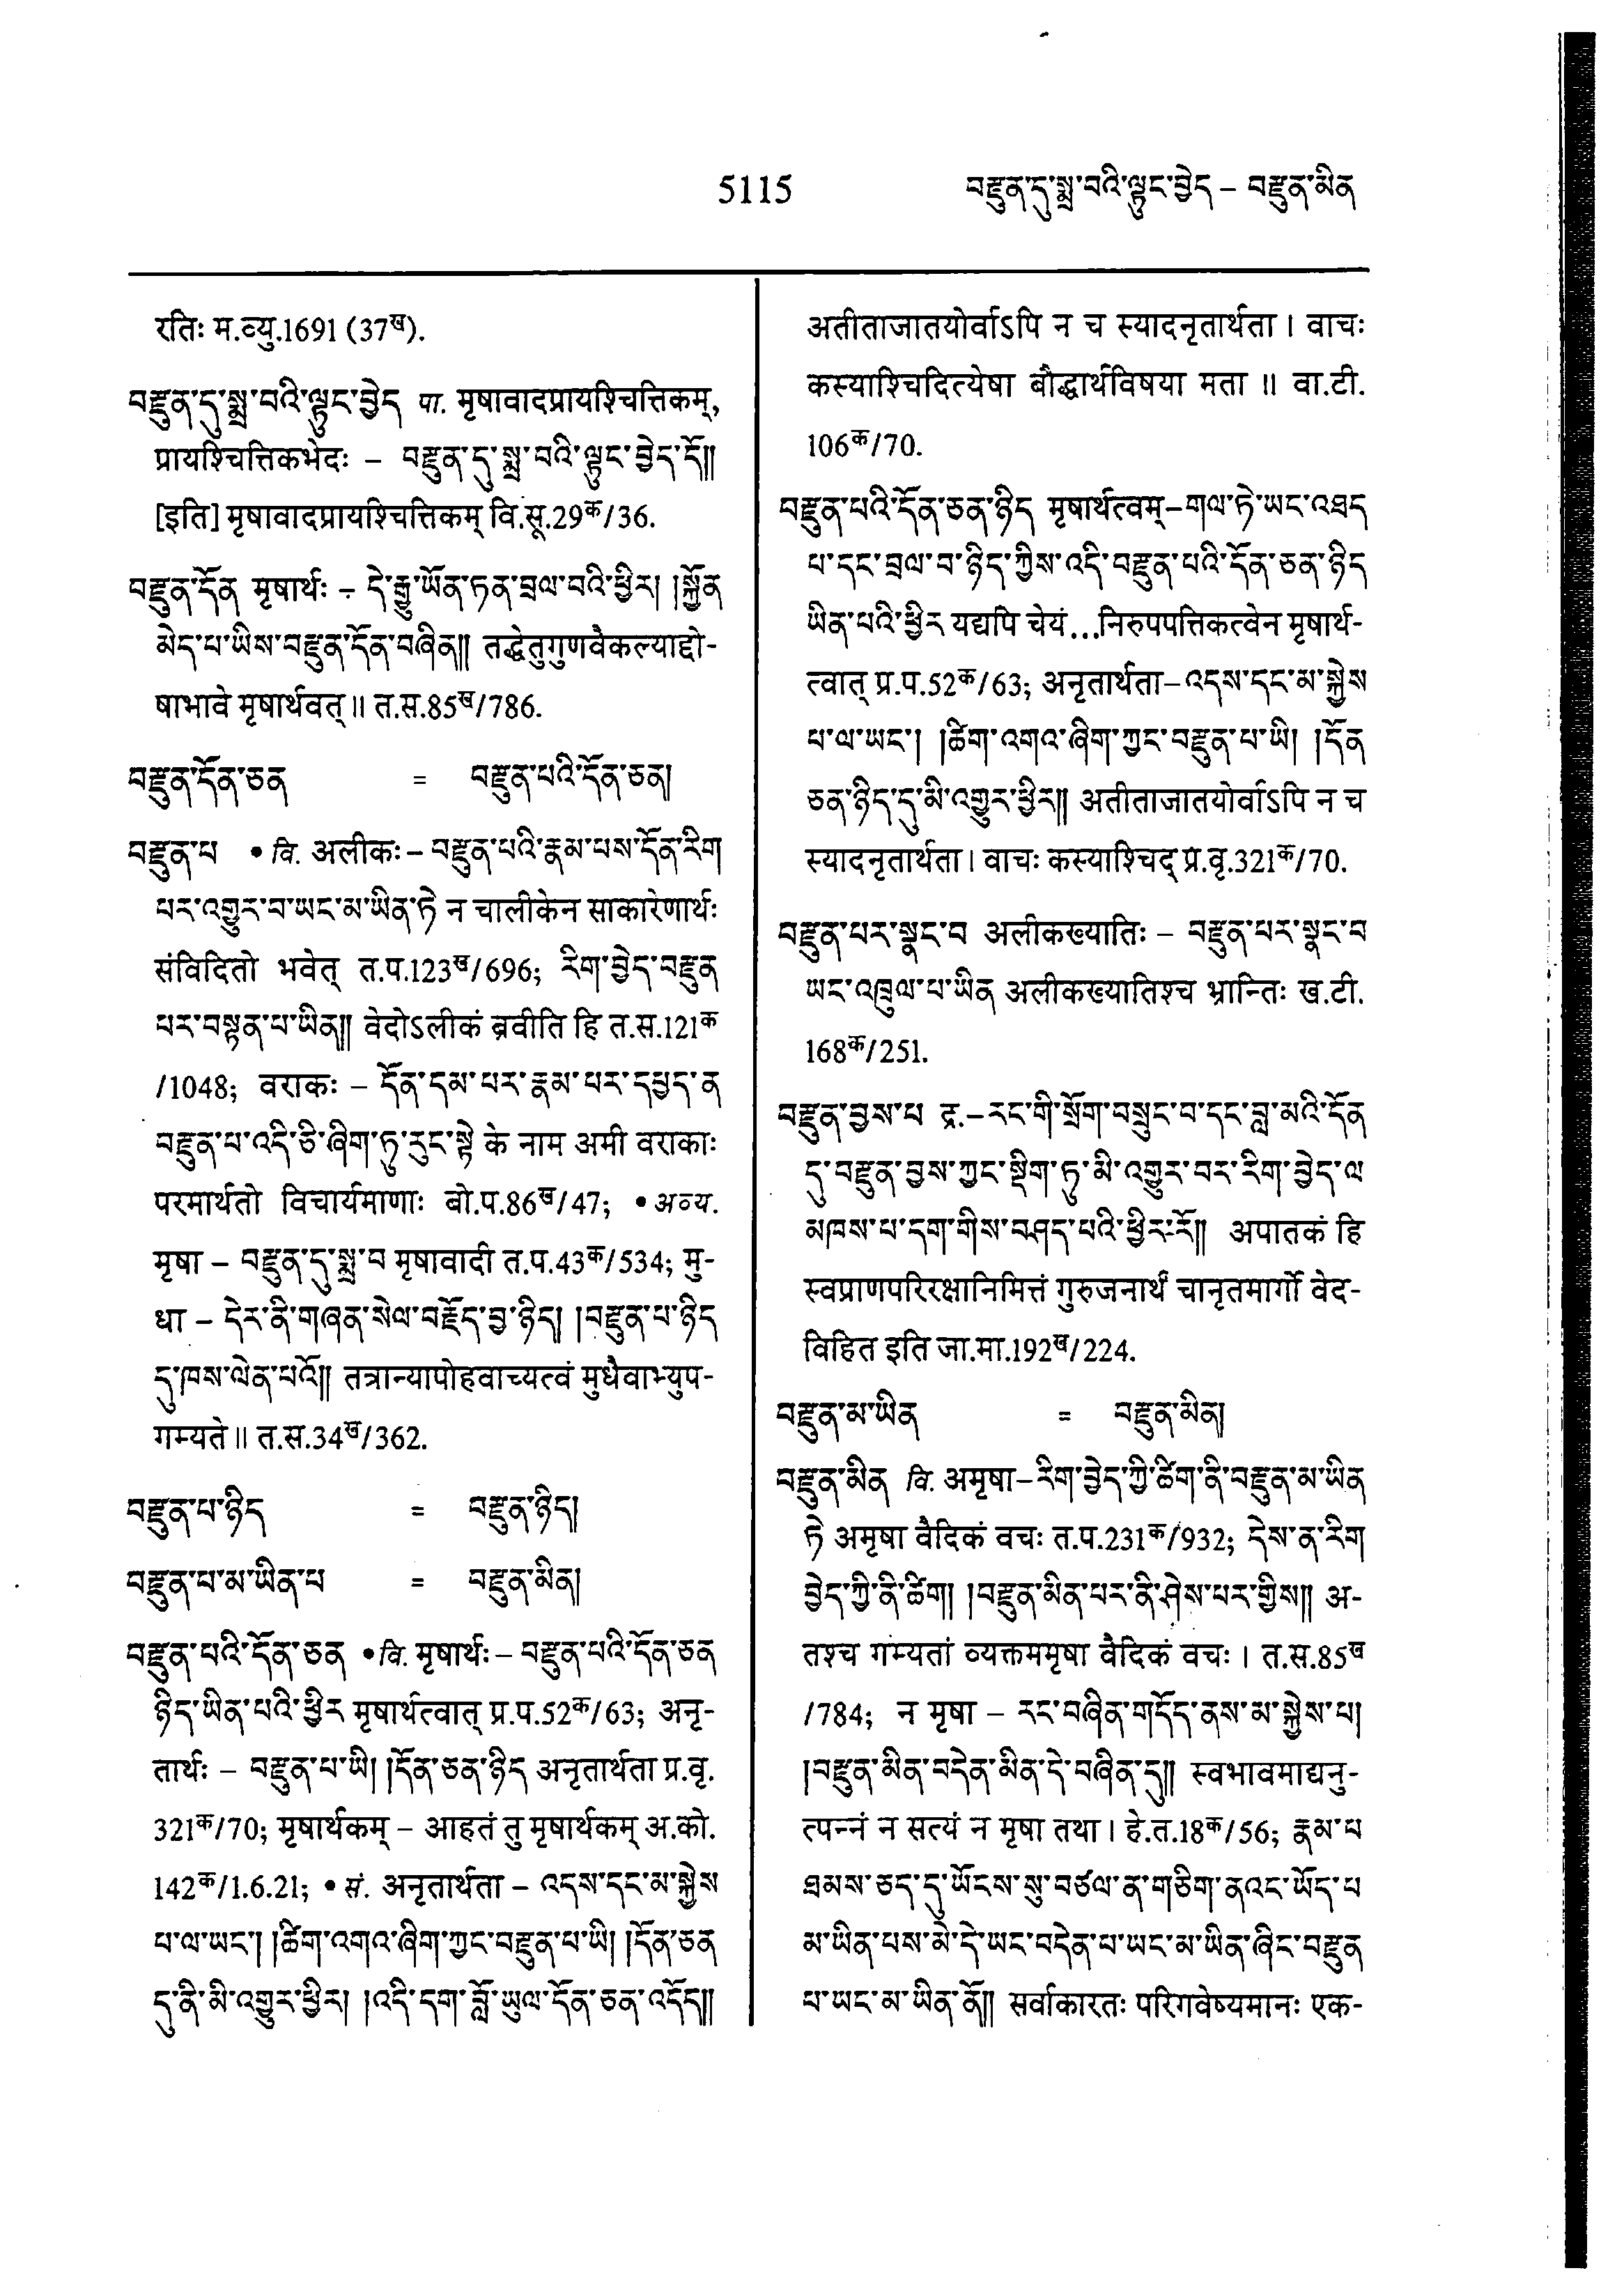 5115
བརྫུན་དུ་སྨྲ་བའི་ལྟུང་བྱེད – བརྫུན་མིན
रतिः म.व्यु.1691 (37ख).
བརྫུན་དུ་སྨྲ་བའི་ལྟུང་བྱེད पा. मृषावादप्रायश्चित्तिकम्,
प्रायश्चित्तिकभेदः – བརྫུན་དུ་སྨྲ་བའི་ལྟུང་བྱེད་དོ༎
[इति] मृषावादप्रायश्चित्तिकम् वि.सू.29क/36.
བརྫུན་དོན मृषार्थः – དེ་རྒྱུ་ཡོན་ཏན་བྲལ་བའི་ཕྱིར། །སྐྱོན
མེད་པ་ཡིས་བརྫུན་དོན་བཞིན༎ तद्धेतुगुणवैकल्याद्दो-
षाभावे मृषार्थवत्॥ त.स.85ख/786.
བརྫུན་དོན་ཅན = བརྫུན་པའི་དོན་ཅན།
བརྫུན་པ • वि. अलीकः – བརྫུན་པའི་རྣམ་པས་དོན་རིག
པར་འགྱུར་བ་ཡང་མ་ཡིན་ཏེ न चालीकेन साकारेणार्थः
संविदितो भवेत् त.प.123ख/696; རིག་བྱེད་བརྫུན
པར་བསྟན་པ་ཡིན༎ वेदोऽलीकं ब्रवीति हि त.स.121क
/1048; वराकः – དོན་དམ་པར་རྣམ་པར་དཔྱད་ན
བརྫུན་པ་འདི་ཅི་ཞིག་ཏུ་རུང་སྟེ के नाम अमी वराकाः
परमार्थतो विचार्यमाणाः बो.प.86ख/47; • अव्य.
मृषा – བརྫུན་དུ་སྨྲ་བ मृषावादी त.प.43क/534; मु-
धा – དེར་ནི་གཞན་སེལ་བརྗོད་བྱ་ཉིད། །བརྫུན་པ་ཉིད
དུ་ཁས་ལེན་པའོ༎ तत्रान्यापोहवाच्यत्वं मुधैवाभ्युप-
गम्यते॥ त.स.34ख/362.
བརྫུན་པ་ཉིད = བརྫུན་ཉིད།
བརྫུན་པ་མ་ཡིན་པ = བརྫུན་མིན།
བརྫུན་པའི་དོན་ཅན • वि. मृषार्थः – བརྫུན་པའི་དོན་ཅན
ཉིད་ཡིན་པའི་ཕྱིར मृषार्थत्वात् प्र.प.52क/63; अनृ-
तार्थः – བརྫུན་པ་ཡི། །དོན་ཅན་ཉིད अनृतार्थता प्र.वृ.
321क/70; मृषार्थकम् – आहतं तु मृषार्थकम् अ.को.
142क/1.6.21; • सं. अनृतार्थता – འདས་དང་མ་སྐྱེས
པ་ལ་ཡང་། །ཚིག་འགའ་ཞིག་ཀྱང་བརྫུན་པ་ཡི། །དོན་ཅན
དུ་ནི་མི་འགྱུར་ཕྱིར། །འདི་དག་བློ་ཡུལ་དོན་ཅན་འདོད༎
अतीताजातयोर्वाऽपि न च स्यादनृतार्थता। वाचः
कस्याश्चिदित्येषा बौद्धार्थविषया मता॥ वा.टी.
106क/70.
བརྫུན་པའི་དོན་ཅན་ཉིད मृषार्थत्वम् – གལ་ཏེ་ཡང་འཐད
པ་དང་བྲལ་བ་ཉིད་ཀྱིས་འདི་བརྫུན་པའི་དོན་ཅན་ཉིད
ཡིན་པའི་ཕྱིར यद्यपि चेयं...निरुपपत्तिकत्वेन मृषार्थ-
त्वात् प्र.प.52क/63; अनृतार्थता – འདས་དང་མ་སྐྱེས
པ་ལ་ཡང་། །ཚིག་འགའ་ཞིག་ཀྱང་བརྫུན་པ་ཡི། །དོན
ཅན་ཉིད་དུ་མི་འགྱུར་ཕྱིར༎ अतीताजातयोर्वाऽपि न च
स्यादनृतार्थता। वाचः कस्याश्चिद् प्र.वृ.321क/70.
བརྫུན་པར་སྣང་བ अलीकख्यातिः – བརྫུན་པར་སྣང་བ
ཡང་འཁྲུལ་པ་ཡིན अलीकख्यातिश्च भ्रान्तिः ख.टी.
168क/251.
བརྫུན་བྱས་པ द्र. – རང་གི་སྲོག་བསྲུང་བ་དང་བླ་མའི་དོན
དུ་བརྫུན་བྱས་ཀྱང་སྡིག་ཏུ་མི་འགྱུར་བར་རིག་བྱེད་ལ
མཁས་པ་དག་གིས་བཤད་པའི་ཕྱིར་རོ༎ अपातकं हि
स्वप्राणपरिरक्षानिमित्तं गुरुजनार्थं चानृतमार्गो वेद-
विहित इति जा.मा.192ख/224.
བརྫུན་མ་ཡིན = བརྫུན་མིན།
བརྫུན་མིན वि. अमृषा – རིག་བྱེད་ཀྱི་ཚིག་ནི་བརྫུན་མ་ཡིན
ཏེ अमृषा वैदिकं वचः त.प.231क/932; དེས་ན་རིག
བྱེད་ཀྱི་ནི་ཚིག། །བརྫུན་མིན་པར་ནི་ཤེས་པར་གྱིས༎ अ-
तश्च गम्यतां व्यक्तममृषा वैदिकं वचः। त.स.85ख
/784; न मृषा – རང་བཞིན་གདོད་ནས་མ་སྐྱེས་པ།
།བརྫུན་མིན་བདེན་མིན་དེ་བཞིན་དུ༎ स्वभावमाद्यनु-
त्पन्नं न सत्यं न मृषा तथा। हे.त.18क/56; རྣམ་པ
ཐམས་ཅད་དུ་ཡོངས་སུ་བཙལ་ན་གཅིག་ནའང་ཡོད་པ
མ་ཡིན་པས་མེ་དེ་ཡང་བདེན་པ་ཡང་མ་ཡིན་ཞིང་བརྫུན
པ་ཡང་མ་ཡིན་ནོ༎ सर्वाकारतः परिगवेष्यमानः एक-